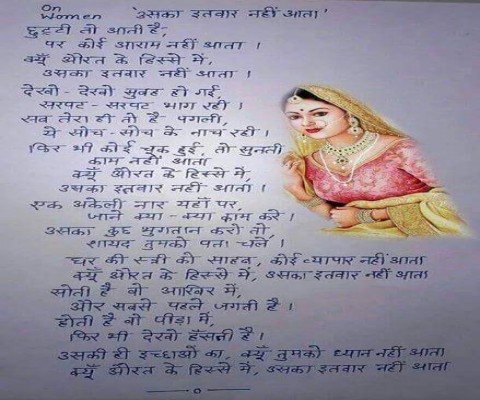 On
Women 'उसका इतवार नहीं आता'
छुट्टी तो आती है,
पर कोई आराम नहीं आता ।
क्यूँ औरत के हिस्से में,
उसका इतवार नहीं आता ।
देखो - देखो सुबह हो गई,
सरपट - सरपट भाग रही ।
सब तेरा ही तो है - पगली,
ये सोच - सोच के नाच रही ।
फिर भी कोई चूक हुई, तो सुनती
काम नहीं आता
क्यूँ औरत के हिस्से में,
उसका इतवार नहीं आता ।
एक अकेली नार यहाँ पर,
जाने क्या - क्या काम करे ।
उसका कुछ भुगतान करो तो,
शायद तुमको पता चले ।
घर की स्त्री को साहब, कोई व्यापार नहीं आता
क्यूँ औरत के हिस्से में, उसका इतवार नहीं आता
सोती है वो आखिर में,
और सबसे पहले जगती है ।
होती है वो पीड़ा में,
फिर भी देखो हँसती है ।
उसकी ही इच्छाओं का, क्यूँ तुमको ध्यान नहीं आता
क्यूँ औरत के हिस्से में, उसका इतवार नहीं आता